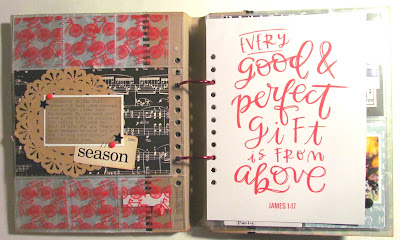 season
EVERY
good &
perfect
giFt
is FROM
above
JAMES 1:17